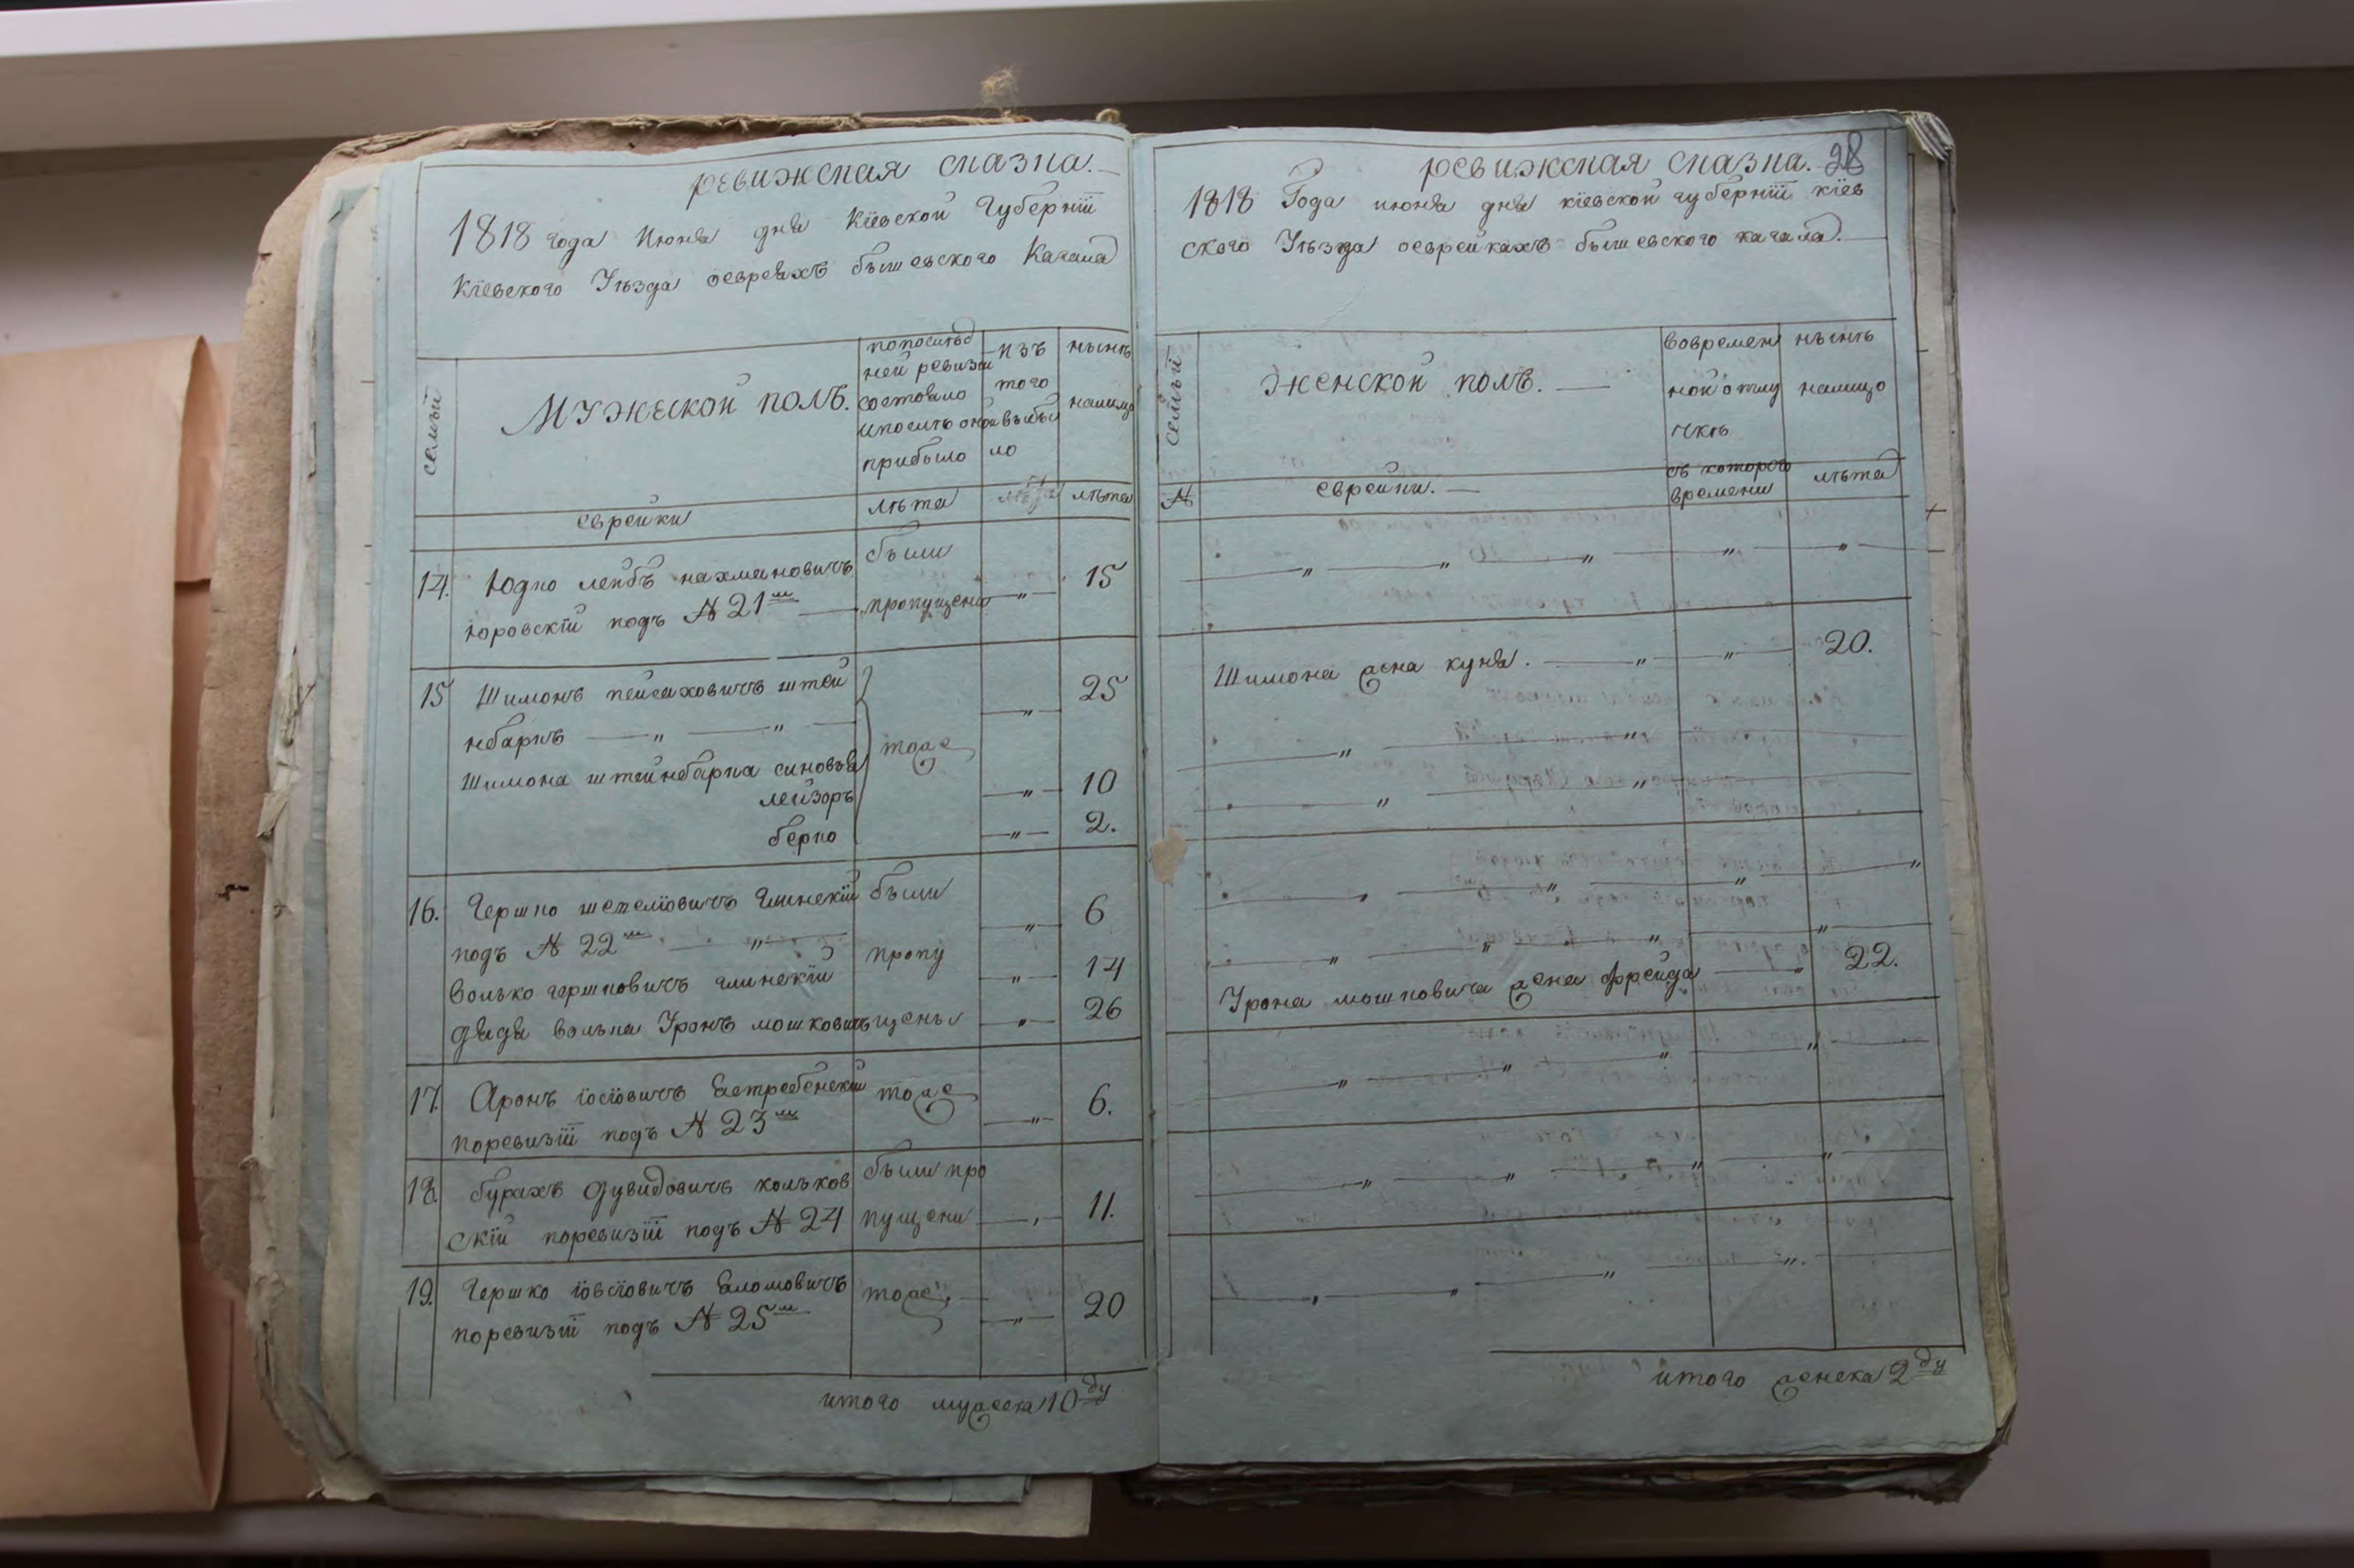 ревижская сказка.
1818 года Июня дня Кіевской Губерніи
Кіевского Уѣзда оевреяхъ бышевского Кагала
семьи
МУЖЕСКОЙ ПОЛЪ.
попослѣд
ней ревизіи
состояло
ипослѣ оной
прибыло
изъ
того
выбы
ло
нынѣ
налицо
еврейки
лѣта
лѣта
лѣта
14. Юдко лейбъ нахмановичъ
юровскій подъ № 21м
были
пропущены
„
15
15 Шимонъ пейсаховичъ штей
нбаркъ — „ — „ —
Шимона штейнбарка синовья
лейзоръ
берко
тоже
„ 25
„ 10
„ 2.
16. Гершко шмелiовичъ глинскій
подъ № 22м „
волько гершковичъ глинскій
дядя волька Уронъ мошковичъ
были
пропу
щены
„ 6
„ 14
„ 26
17. Аронъ іосіовичъ Ястребенскій
поревизіи подъ № 23м
тоже
„ 6.
18. бурахъ дувидовичъ кольков
скій поревизіи подъ № 24
были про
пущени
11.
19. Гершко іовсіовичъ
поревизіи подъ № 25м
тоже
„ 20
итого мужеска 10ду
ревижская сказка. 28
1818 Года июня дня кіевской губерніи кіев
ского Уѣзда оеврейкахъ бышевского кагала.
семьи
ЖЕНСКОЙ ПОЛЪ.
вовремен
ной отлу
чкѣ
нынѣ
налицо
№
еврейки.
съ которого
времени
лѣта
Шимона жена куня. — „ — „ — 20.
Урона мошковича жена фрейда — „ 22.
итого женска 2ду